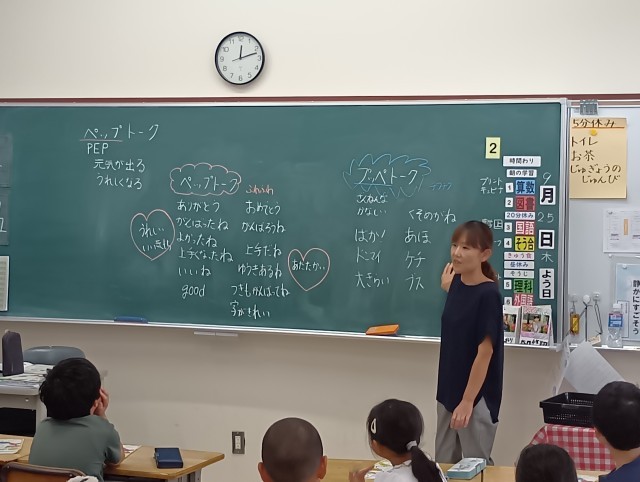 ペップトーク
PEP
元気が出る
うれしくなる
ペップトーク
ふわふわ
ありがとう
おめでとう
がんばったね
がんばろうね
よかったね
上手くなったね
上手だね
いいね
ゆうきあるね
good
つぎもがんばってね
字がきれい
うれしい
いい気持ち
あたたかい
プッペトーク
チクチク
くそのかね
ばか
あほ
ケチ
大きらい
ブス
2
時間わり
朝の学習
1 算数
2 図書
20分休み
3 国語
4 そう合
きゅう食
昼休み
そうじ
5 理科
6 外国語
9
月
25
日
木
よう日
5分休み
トイレ
お茶
じゅぎょうの
じゅんび
静かにすごそう